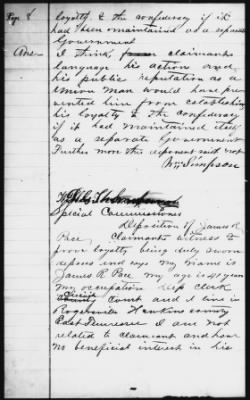 Page 8
loyalty to the confederacy if it
had been maintained as a separate
Government
Ans— I think, from claimants
language his action and
his public reputation as a
Union man would have pre-
vented him from establishing
his loyalty to the Confederacy
if it had maintained itself
as a separate Government
Further more this deponent saith not
Wm Simpson
Special Commissioner
Deposition of James R
Pace, Claimants witness to
prove loyalty being duly sworn
deposes and says my name is
James R. Pace my age is 41 years
my occupation Dep clerk
Circuit Court and I live in
Rogersville Hawkins county
East Tennessee I am not
related to claimant and have
no beneficial interest in his